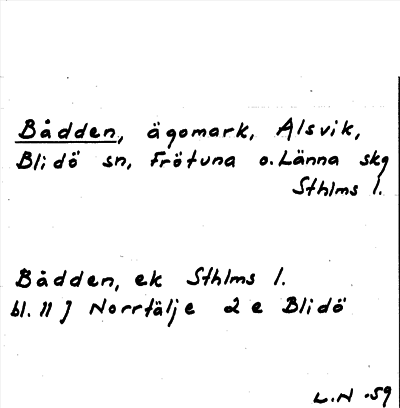 Bådden, ägomark, Alsvik,
Blidö sn, Frötuna o. Länna skg
Sthlms l.
Bådden, ek Sthlms l.
bl. 11 J Norrtälje 2 e Blidö
L.N -59